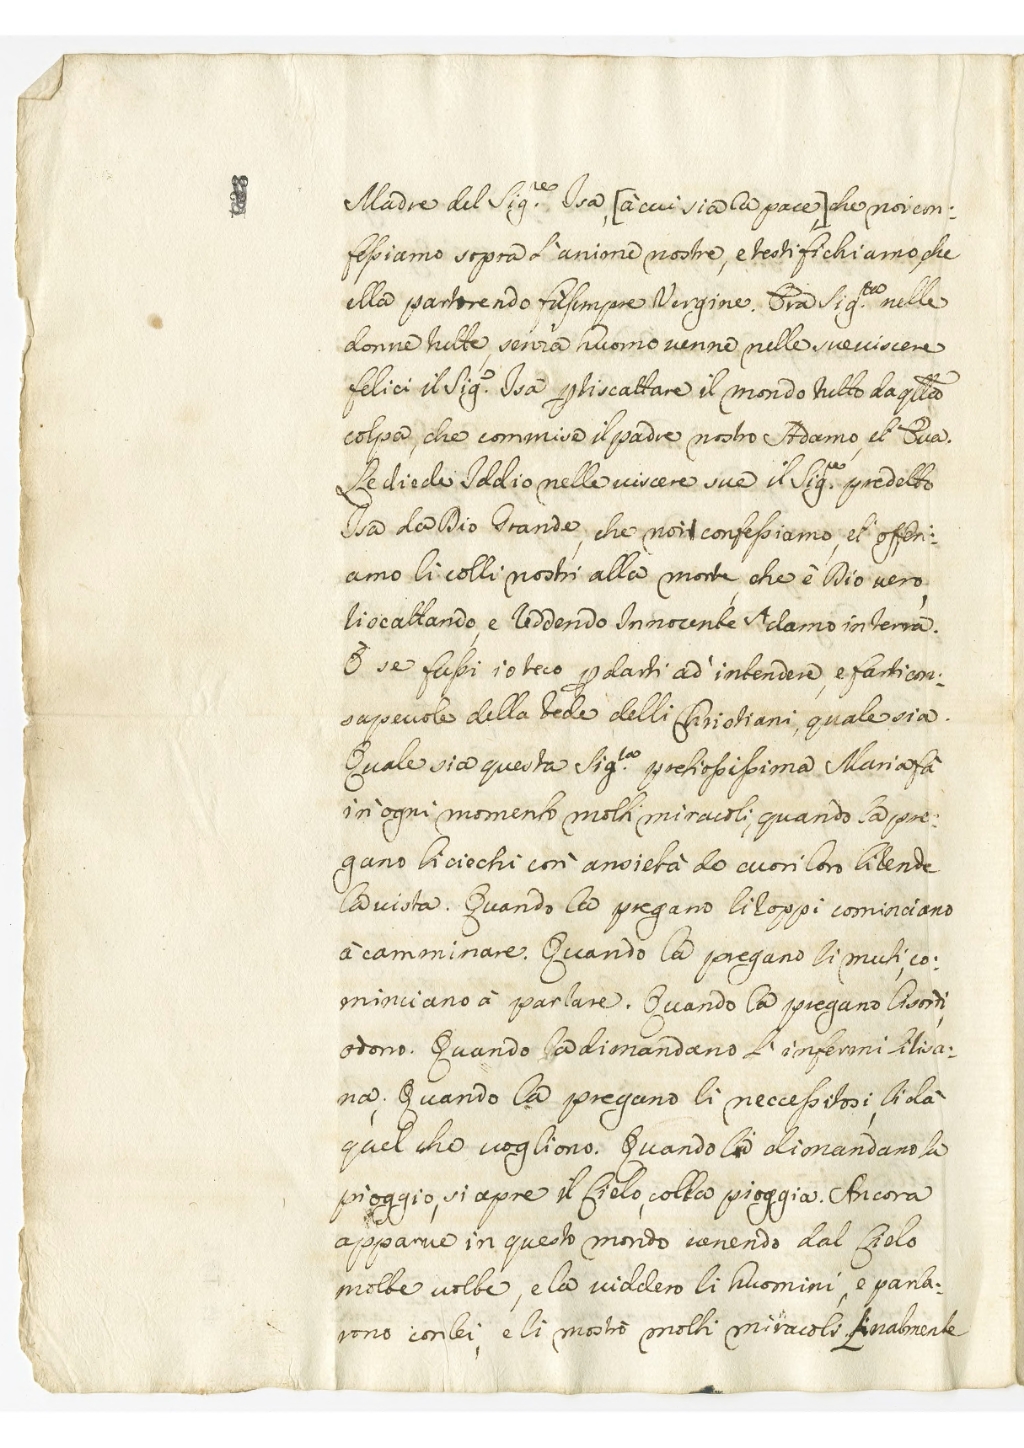 Madre del Sig.re Isa, [à cui sia la pace,] che noi con:
fessiamo sopra l'anime nostre, e testifichiamo, che
ella partorendo fù sempre Vergine. Era Sig.ra nelle
donne tutte, senza huomo venne nelle sue viscere
felici il Sig.e Isa p riscattare il mondo tutto da qlla
colpa, che commise il padre nostro Adamo, et Eua.
Le diede Iddio nelle uiscere sue il Sig.re predetto
Isa da Dio Grande, che noi confessiamo, et offeri:
amo li colli nostri alla morte, che è Dio uero,
riscattando, e reddendo Innocente Adamo in terra.
E se fussi io teco p darti ad intendere, e farti con:
sapeuole della fede delli Christiani, quale sia.
Quale sia questa Sig.ra pretiosissima Maria fà
in ogni momento molti miracoli, quando la pre:
gano li ciechi con ansietà de cuori loro li rende
la uista. Quando la pregano li zoppi cominciano
à camminare. Quando la pregano li muti, co:
minciano à parlare. Quando la pregano li sordi,
odono. Quando la dimandano l'infermi li risa:
na. Quando la pregano li neccessitosi, li dà
quel che uogliono. Quando la dimandano la
pioggio, si apre il Cielo, colla pioggia. Ancora
apparue in questo mondo uenendo dal Cielo
molte uolte, e la viddero li huomini, e parla:
rono con lei, e li mostrò molti miracoli. Finalmente